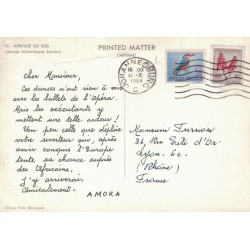 18 - AFRIQUE DU SUD
PRINTED MATTER
JOHANNESBURG
1958
Cher Monsieur,
Ces danses n'ont rien à voir
avec les ballets de l'Opéra.
Mais les exécutants y
mettent une telle ardeur !
Un peu celle que déploie
votre survêteur qui, après
avoir conquis l'Europe
tente sa chance auprès
des Africains.
J'y arriverai
Amicalement.
AMORA
Monsieur Furnon
36, Rue Ste d'Or
Lyon. 6e
(Rhône)
France